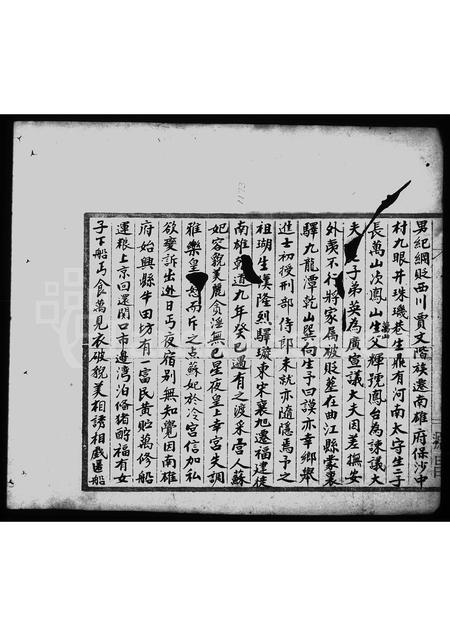 男紀綱貶西川賈文階族遷南雄府保沙中
村九眼井珠璣巷生鼎有河南太守生二子
長萬山次鳳山生父輝號鳳台為諫議大
萬山
夫子弟英為廣宣議大夫因差撫安
外夷不行將家属破貶莚在曲江縣叢裏
驛九龍潭乾山巽向生子曰謨亦幸鄉舉
進士初授刑部侍郎未就亦遁隱焉予之
祖瑚生漢隆烈驛璇東宋襄旭遷福建徒
南雄乾道九年癸巳遇有之渡采营人蘇
妃容貌美麗貪淫無已星夜皇上幸宮失調
雅樂皇怒而斥之点蘇妃於冷宮信加私
欲棄訴出赴日丐夜宿别無知覺因南雄
府始興縣牛田坊有一富民黄貯萬修船
運粮上京回還関口市邊湾泊俻猪酧福有女
子下船丐食萬見衣破貌美相誘相戲匿船
1173